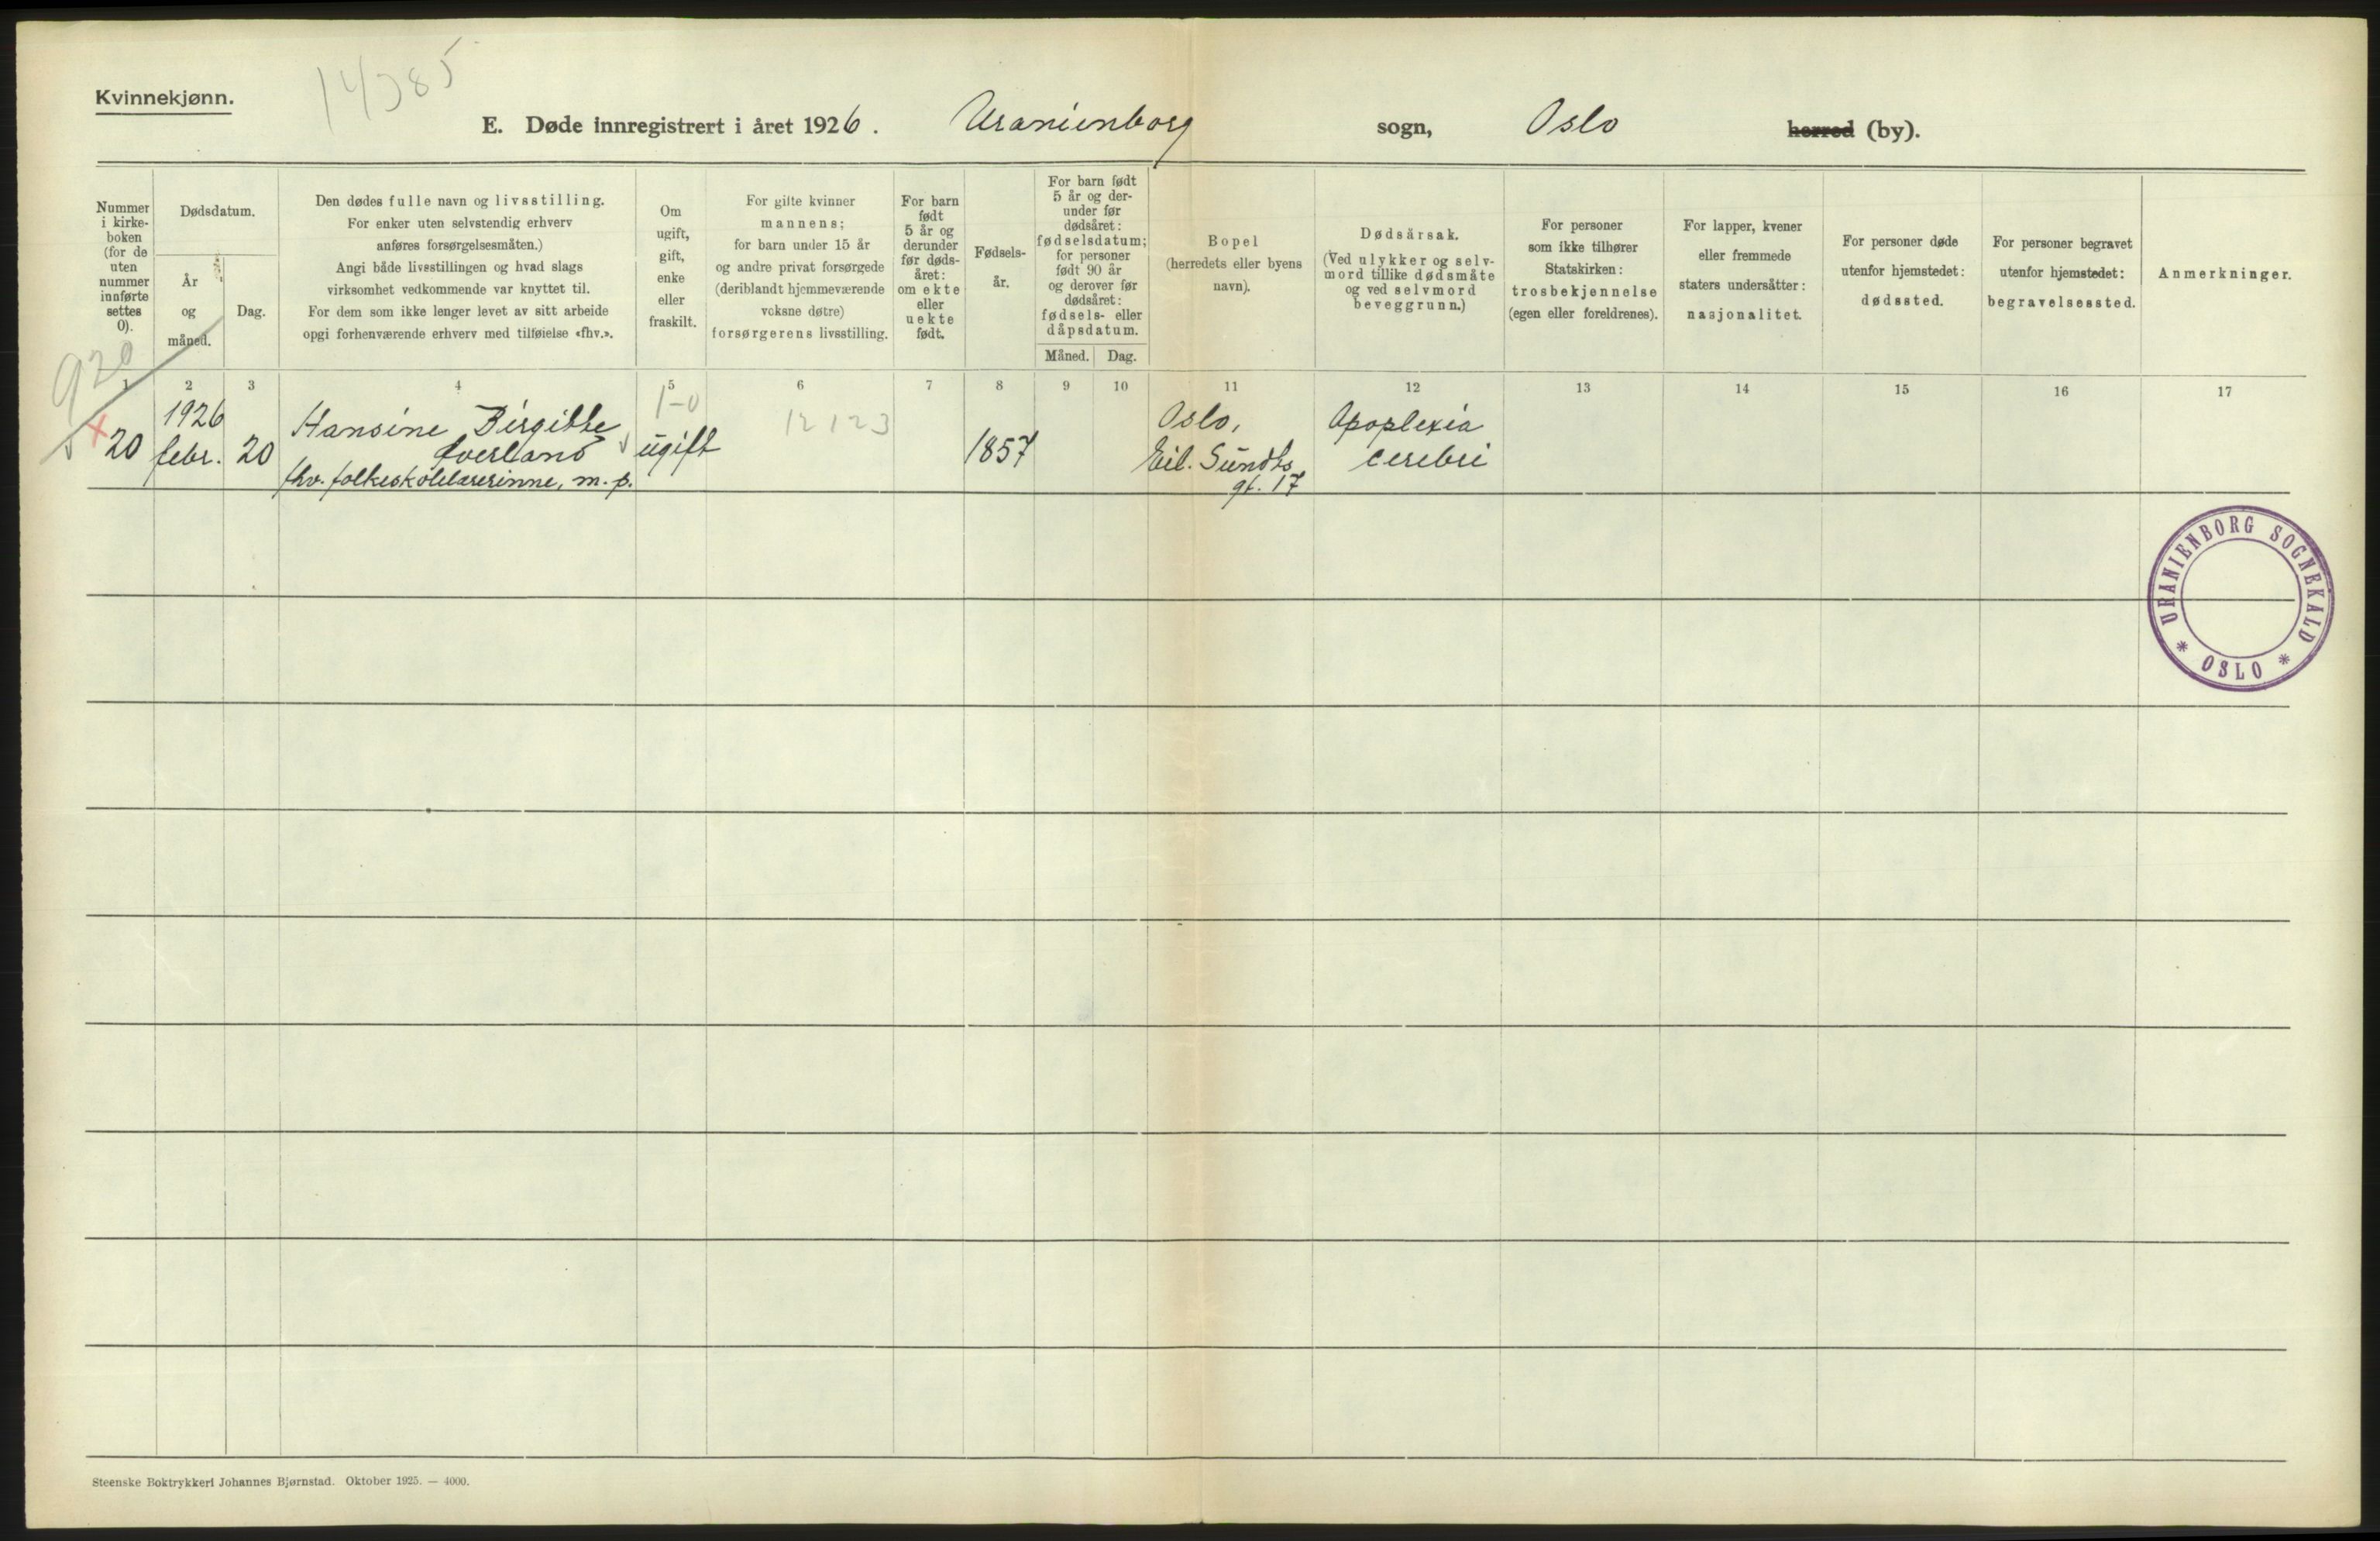 Kvinnekjønn.
14385
E. Døde innregistrert i året 1926. Uranienborg sogn, Oslo herred (by).
Nummer
i kirke-
boken
(for de
uten
nummer
innførte
settes
0).
Dødsdatum.
År
og
måned.
Dag.
Den dødes fulle navn og livsstilling.
For enker uten selvstendig erhverv
anføres forsørgelsesmåten.)
Angi både livsstillingen og hvad slags
virksomhet vedkommende var knyttet til.
For dem som ikke lenger levet av sitt arbeide
opgi forhenværende erhverv med tilføielse «fhv.».
Om
ugift,
gift,
enke
eller
fraskilt.
For gifte kvinner
mannens;
for barn under 15 år
og andre privat forsørgede
(deriblandt hjemmeværende
voksne døtre)
forsørgerens livsstilling.
For barn
født
5 år og
derunder
før døds-
året:
om ekte
eller
uekte
født.
Fødsels-
år.
For barn født
5 år og der-
under før
dødsåret:
fødselsdatum;
for personer
født 90 år
og derover før
dødsåret:
fødsels- eller
dåpsdatum.
Måned. Dag.
Bopel
(herredets eller byens
navn).
Dødsårsak.
(Ved ulykker og selv-
mord tillike dødsmåte
og ved selvmord
beveggrunn.)
For personer
som ikke tilhører
Statskirken:
trosbekjennelse
(egen eller foreldrenes).
For lapper, kvener
eller fremmede
staters undersåtter:
nasjonalitet.
For personer døde
utenfor hjemstedet:
dødssted.
For personer begravet
utenfor hjemstedet:
begravelsessted.
Anmerkninger.
1 2 3 4 5 6 7 8 9 10 11 12 13 14 15 16 17
920
20
1926
febr.
20
Hansine Birgitte
Øverland
fhv. folkeskolelærerinne, m. p.
1-0
ugift
12123
1857
Oslo,
Eil. Sundts
gt. 17
Apoplexia
cerebri
URANIENBORG SOGNEKALD
* OSLO *
Steenske Boktrykkeri Johannes Bjørnstad. Oktober 1925. — 4000.